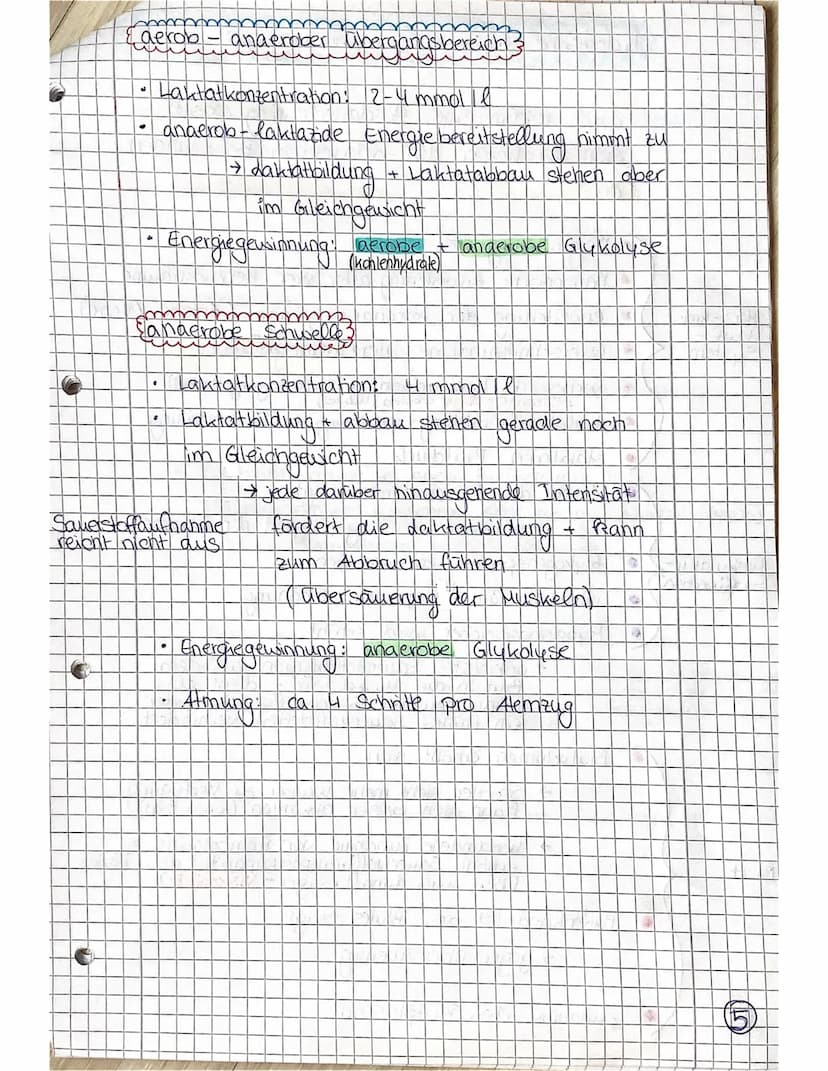 aerob - anaerober Übergangsbereich
• Laktatkonzentration: 2-4 mmol/l
• anaerob-laktazide Energiebereitstellung nimmt zu
→ Laktatbildung + Laktatabbau stehen aber
im Gleichgewicht
• Energiegewinnung: aerobe + anaerobe Glykolyse
(Kohlenhydrate)
anaerobe Schwelle
• Laktatkonzentration: 4 mmol/l
• Laktatbildung + abbau stehen gerade noch
im Gleichgewicht
→ jede darüber hinausgehende Intensität
Sauerstoffaufnahme fördert die Laktatbildung + kann
reicht nicht aus
zum Abbruch führen
(Übersäuerung der Muskeln)
• Energiegewinnung: anaerobe Glykolyse
• Atmung: ca. 4 Schritte pro Atemzug
5